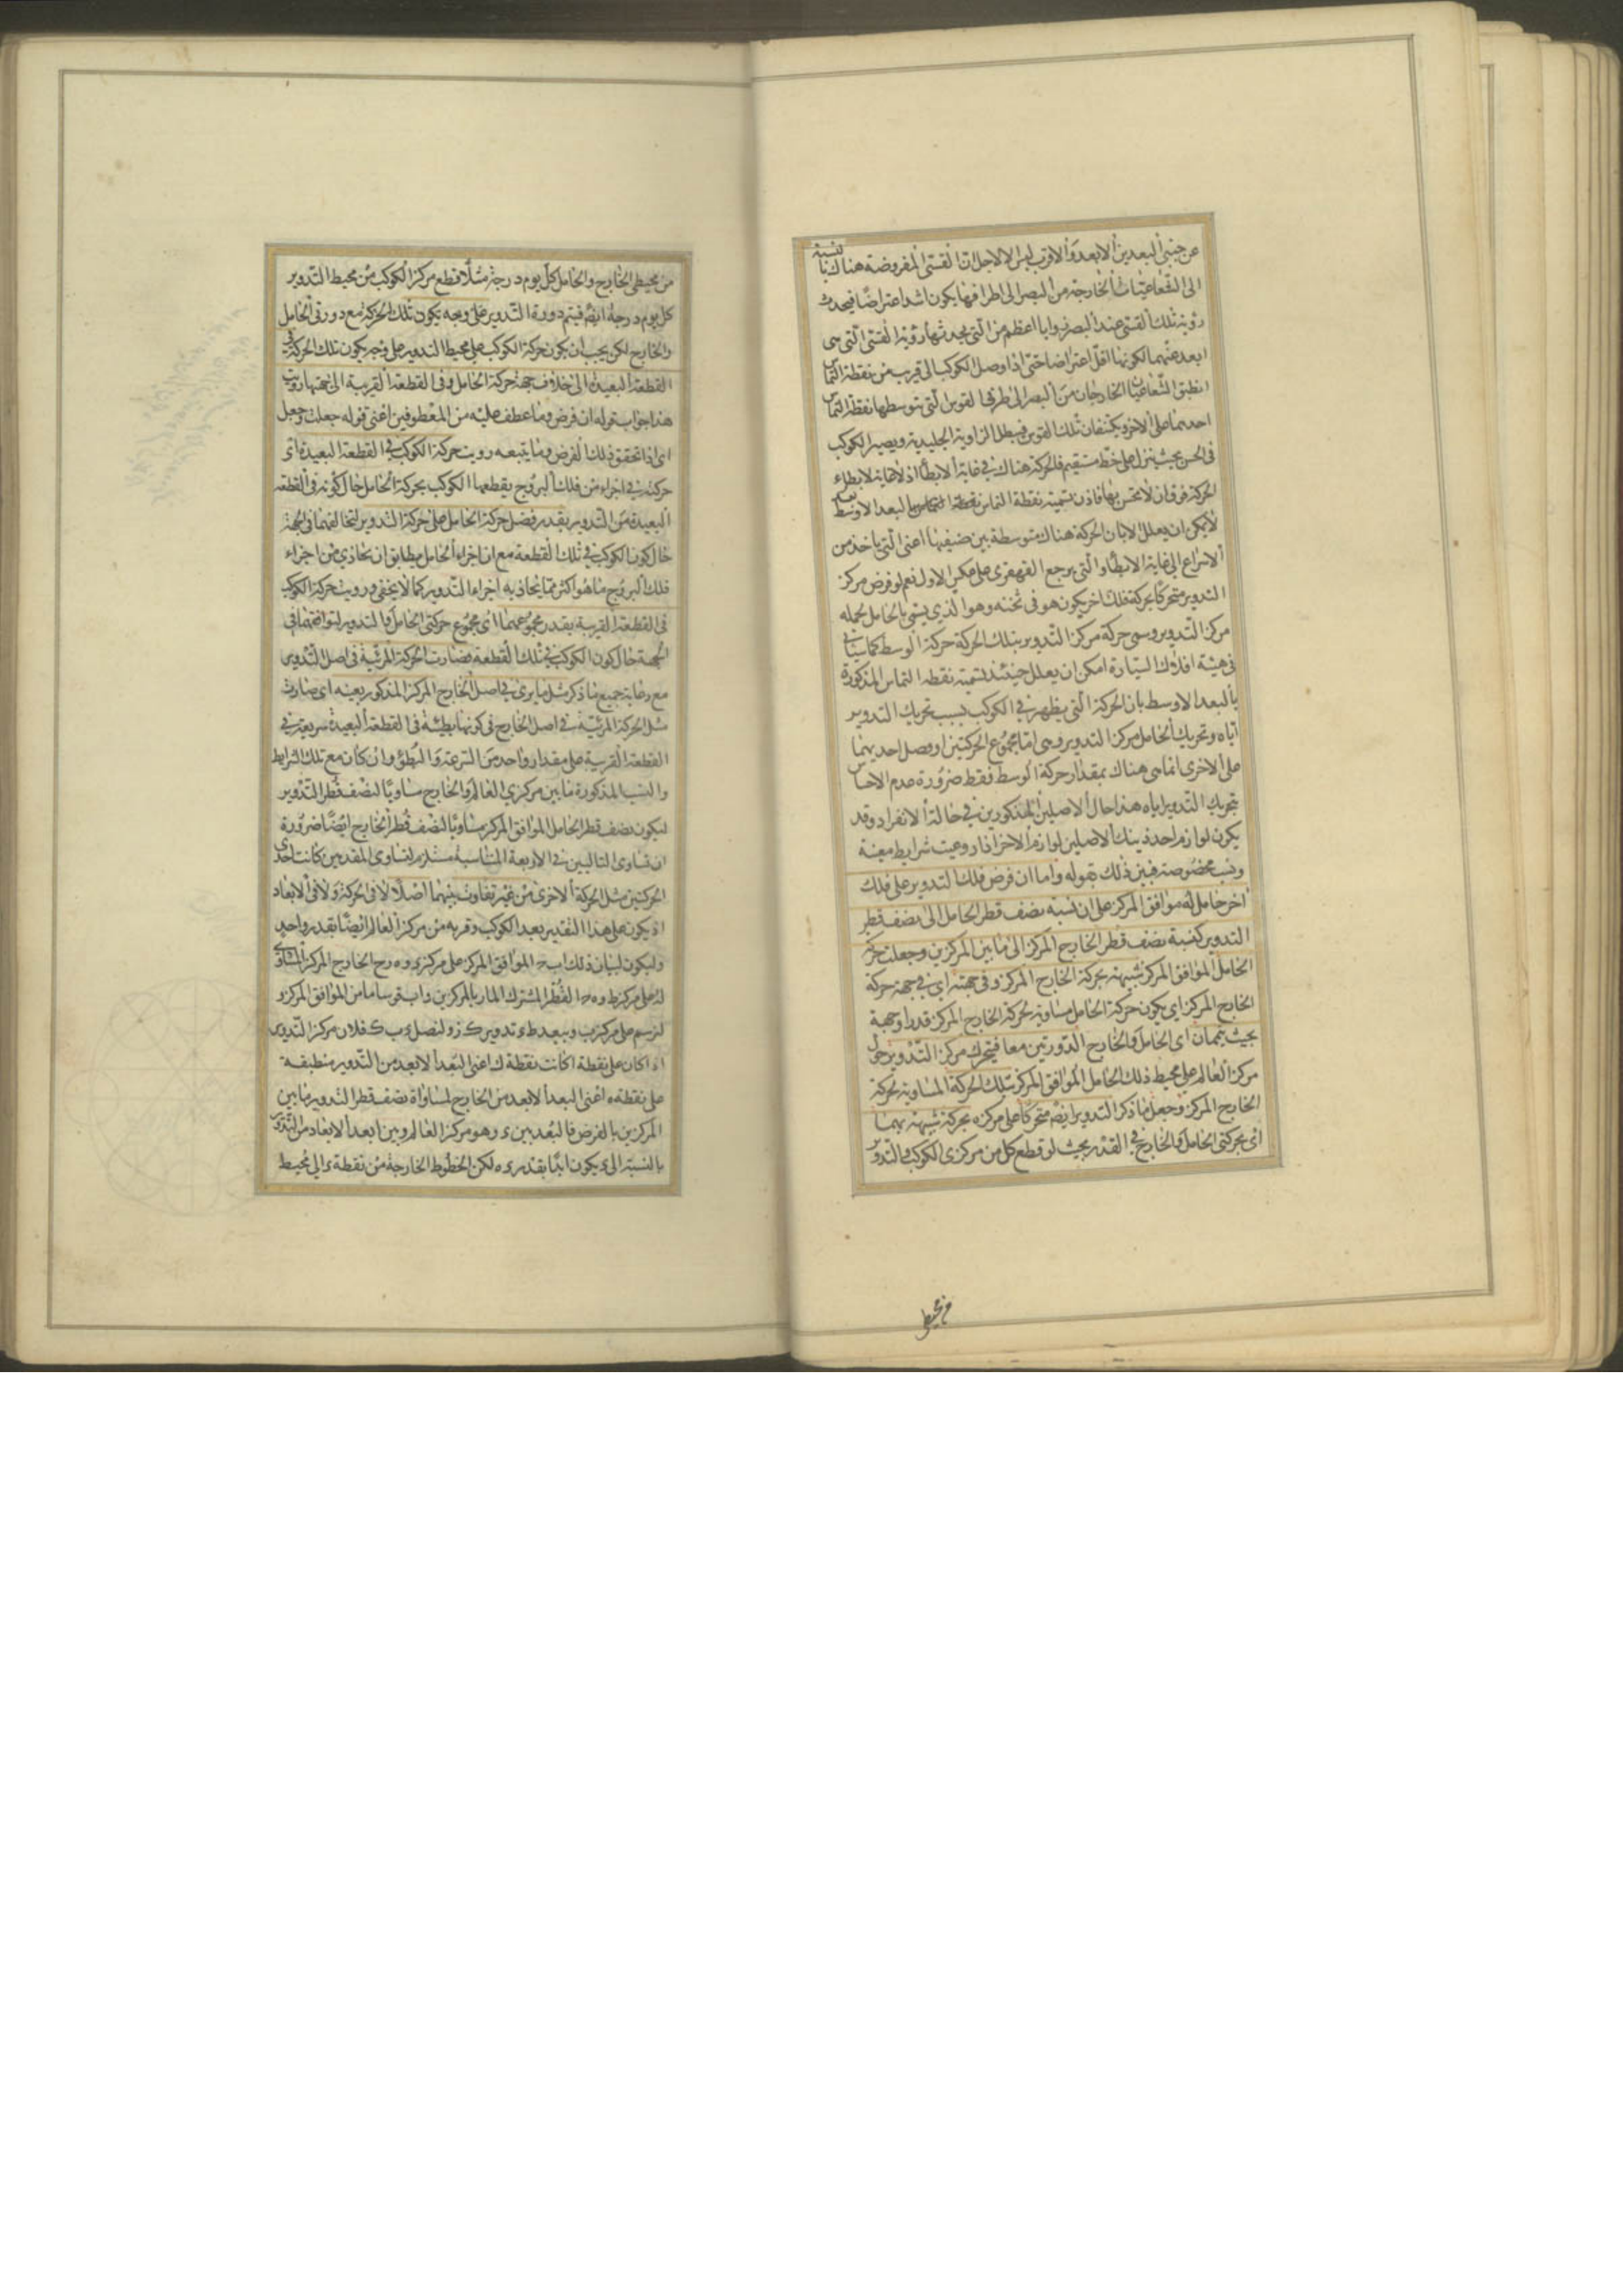 عن جنبتى البعدين الابعد والاقرب ليس الا لاجل ان القسى المفروضة هناك بالنسبة
الى الشعاعيات الخارجة من البصر الى اطرافها يكون اشد اعتراضا فيحدث
رؤية تلك القسى عند البصر زوايا اعظم من التى يحدثها رؤية القسى التى هى
ابعد عنهما لكونها اقل اعتراضا حتى اذا وصل الكوكب الى قريب من نقطة التماس
انطبق الشعاعيان الخارجان من البصر الى طرفى القوس التى يتوسطها نقطة التماس
احدهما على الاخر ويكتنفان تلك القوس فيبطل الزاوية الجليدية ويصير الكوكب
فى الحس بحيث ينزل على خط مستقيم فالحركة هناك فى غاية الابطأ اذ لا غاية لابطاء
الحركة فوق ان لا يحس بها فاذن تسمية نقطة التماس بالبعد الاوسط
لا يمكن ان يعلل الا بان الحركة هناك متوسطة بين صنفيها اعنى التى ياخذ من
الاسراع الى غاية الابطأ والتى يرجع القهقرى على عكس الاول نعم لو فرض مركز
التدوير متحركا بحركة فلك اخر يكون هو فى ثخنه وهو الذى يسمى بالحامل لحمله
مركز التدوير وسمى حركة مركز التدوير بتلك الحركة حركة الوسط كما سيأتى
فى هيئة افلاك السيارة امكن ان يعلل حينئذ تسمية نقطة التماس المذكورة
بالبعد الاوسط بان الحركة التى يظهر فى الكوكب بسبب تحريك التدوير
اياه وتحريك الحامل مركز التدوير وهى اما مجموع الحركتين او فضل احديهما
على الاخرى انما هى هناك بمقدار حركة الوسط فقط ضرورة عدم الاحساس
بتحريك التدوير اياه هذا حال الاصلين المذكورين فى حالة الانفراد وقد
يكون لوازم احد ذينك الاصلين لوازم الاخر اذا روعيت شرايط معينة
ونسب مخصوصة فبين ذلك بقوله واما ان فرض فلك التدوير على فلك
اخر حامل له موافق المركز على ان نسبة نصف قطر الحامل الى نصف قطر
التدوير كنسبة نصف قطر الخارج المركز الى ما بين المركزين وجعلت حركة
الحامل الموافق المركز شبيهة بحركة الخارج المركز وفى جهته اى فى جهة حركة
الخارج المركز اى يكون حركة الحامل مساوية لحركة الخارج المركز قدرا وجهة
بحيث يتمان اى الحامل والخارج الدورتين معا فيتحرك مركز التدوير حول
مركز العالم على محيط ذلك الحامل الموافق المركز بتلك الحركة المساوية لحركة
الخارج المركز وجعل ما ذكر التدوير ايضا متحركا على مركزه بحركة شبيهة بهما
اى بحركتى الحامل والخارج فى القدر بحيث لو قطع كل من مركزى الكوكب والتدوير
من محيط
من محيطى الخارج والحامل كل يوم درجة مثلا قطع مركز الكوكب من محيط التدوير
كل يوم درجة ايضا فيتم دورة التدوير على وجه يكون تلك الحركة مع دورتى الحامل
والخارج لكن يجب ان يكون حركة الكوكب على محيط التدوير على وجه يكون تلك الحركة فى
القطعة البعيدة الى خلاف جهة حركة الحامل وفى القطعة القريبة الى جهتها رويت
هذا جواب قوله ان فرض وما عطف عليه من المعطوفين اعنى قوله جعلت وجعل
اى اذا تحقق ذلك الفرض وما يتبعه رويت حركة الكوكب فى القطعة البعيدة اى
حركته فى اجزاء من فلك البروج يقطعها الكوكب بحركة الحامل حال كونه فى القطعة
البعيدة من التدوير بقدر فضل حركة الحامل على حركة التدوير لتخالفهما فى الجهة
حال كون الكوكب فى تلك القطعة مع ان اجزاء الحامل يطابق ان يحاذى من اجزاء
فلك البروج ما هو اكثر مما يحاذيه اجزاء التدوير كما لا يخفى ورويت حركة الكوكب
فى القطعة القريبة بقدر مجموعهما اى مجموع حركتى الحامل والتدوير لتوافقهما فى
الجهة حال كون الكوكب فى تلك القطعة فصارت الحركة المرئية فى اصل التدوير
مع رعاية جميع ما ذكر مثل ما يرى فى اصل الخارج المركز المذكور بعينه اى صارت
مثل الحركة المرئية فى اصل الخارج فى كونها بطيئة فى القطعة البعيدة سريعة فى
القطعة القريبة على مقدار واحد من السرعة والبطؤ وان كان مع تلك الشرايط
والنسب المذكورة ما بين مركزى العالم والخارج مساويا لنصف قطر التدوير
ليكون نصف قطر الحامل الموافق المركز مساويا لنصف قطر الخارج ايضا ضرورة
ان تساوى التاليين فى الاربعة المتناسبة مستلزم لتساوى المقدمين كانت احدى
الحركتين مثل الحركة الاخرى من غير تفاوت بينهما اصلا لا فى الحركة ولا فى الابعاد
اذ يكون على هذا التقدير بعد الكوكب وقربه من مركز العالم ايضا بقدر واحد
وليكون لبيان ذلك اب ج الموافق المركز على مركز ء و ه ح الخارج المركز المساوى
له على مركز ط و ه ح القطر المشترك المار بالمركزين و اب قوسا ما من الموافق المركز و
لنرسم على مركز ب وببعد ط ء تدوير ك ز ولنصل ء ب ك فلان مركز التدوير
اذا كان على نقطة ا كانت نقطة ك اعنى البعد الابعد من التدوير منطبقة
على نقطة ه اعنى البعد الابعد من الخارج لمساواة نصف قطر التدوير ما بين
المركزين بالفرض فالبعد بين ء وهو مركز العالم وبين ابعد الابعاد من التدوير
بالنسبة الى ء يكون ابدا بقدر ء ه لكن الخطوط الخارجة من نقطة ء الى محيط